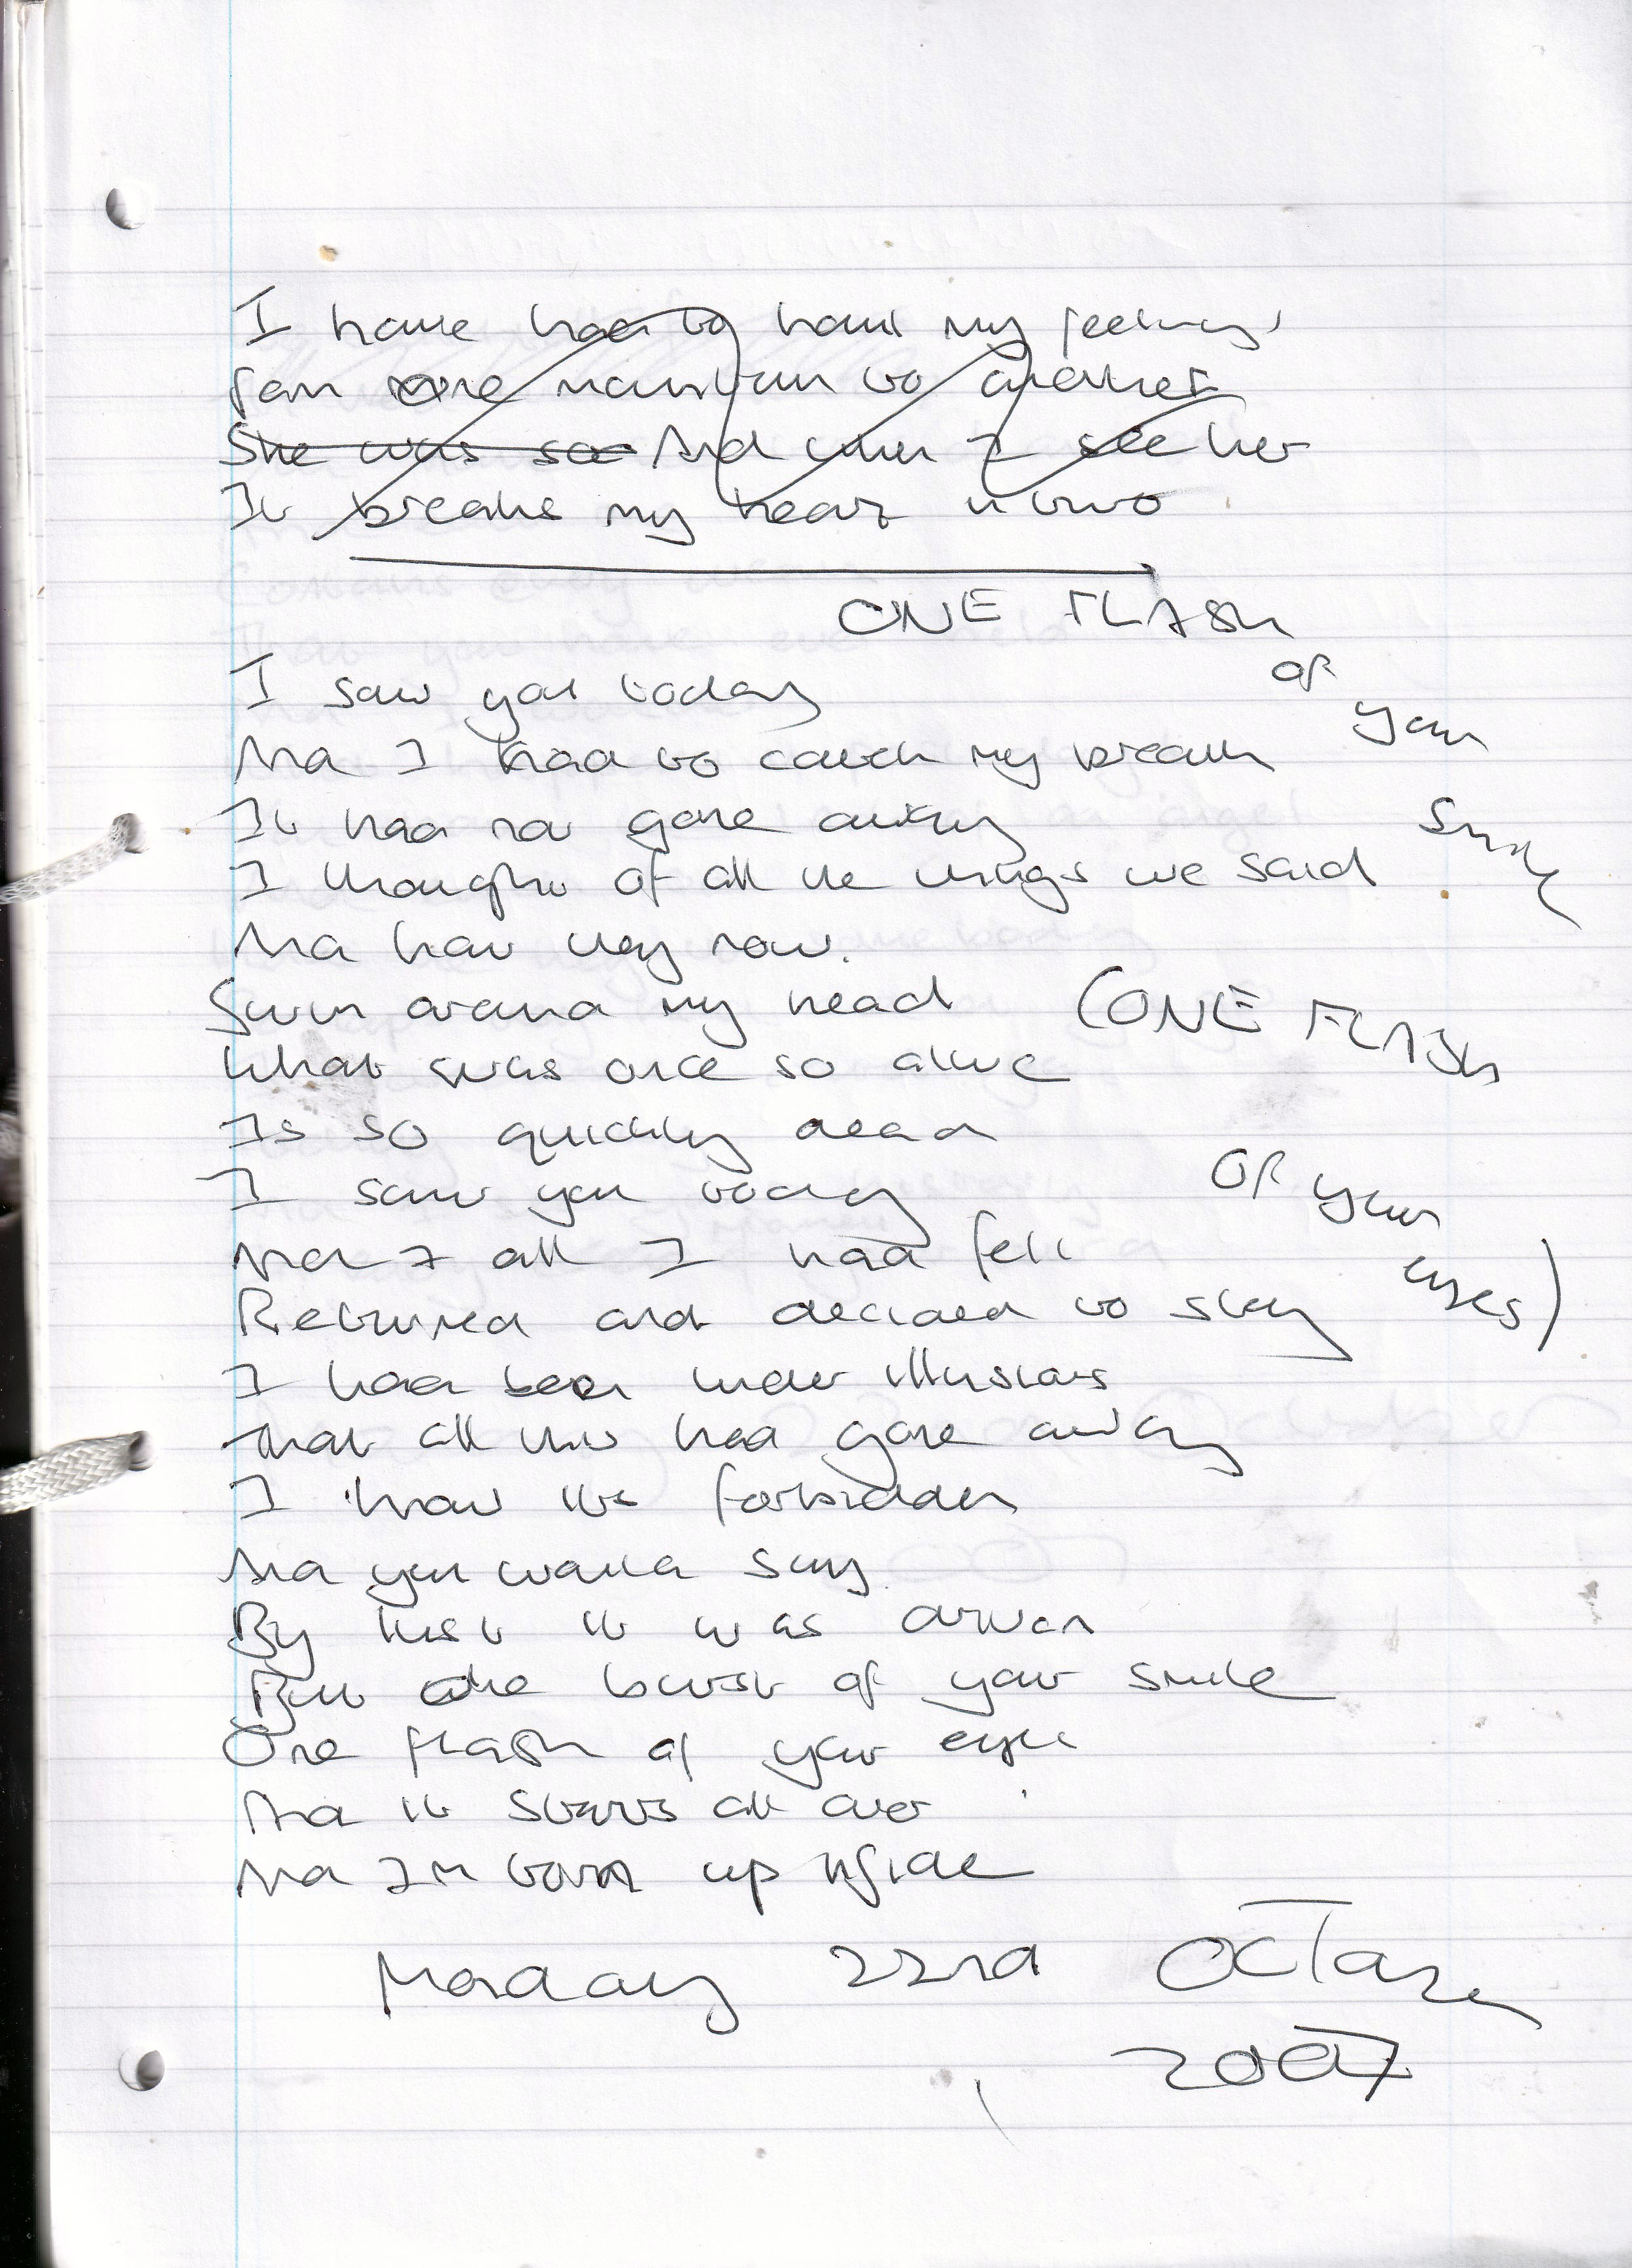 I have had to haul my feelings
From one mountain to another
She was so And when I see her
It breaks my heart in two
ONE FLASH
of
your
Smile
I saw you today
And I had to catch my breath
It had not gone away
I thought of all the things we said
And how they now.
Swim around my head
(ONE FLASH
What was once so alive
Is so quickly dead
I saw you today
OF your
eyes)
And all I had felt
Returned and decided to stay
I had been under illusions
That all this had gone away
I know its forbidden
And you wanna say
By lust it was driven
But one burst of your smile
One flash of your eyes
And it starts all over
And Im torn up inside
Monday 22nd October
2007